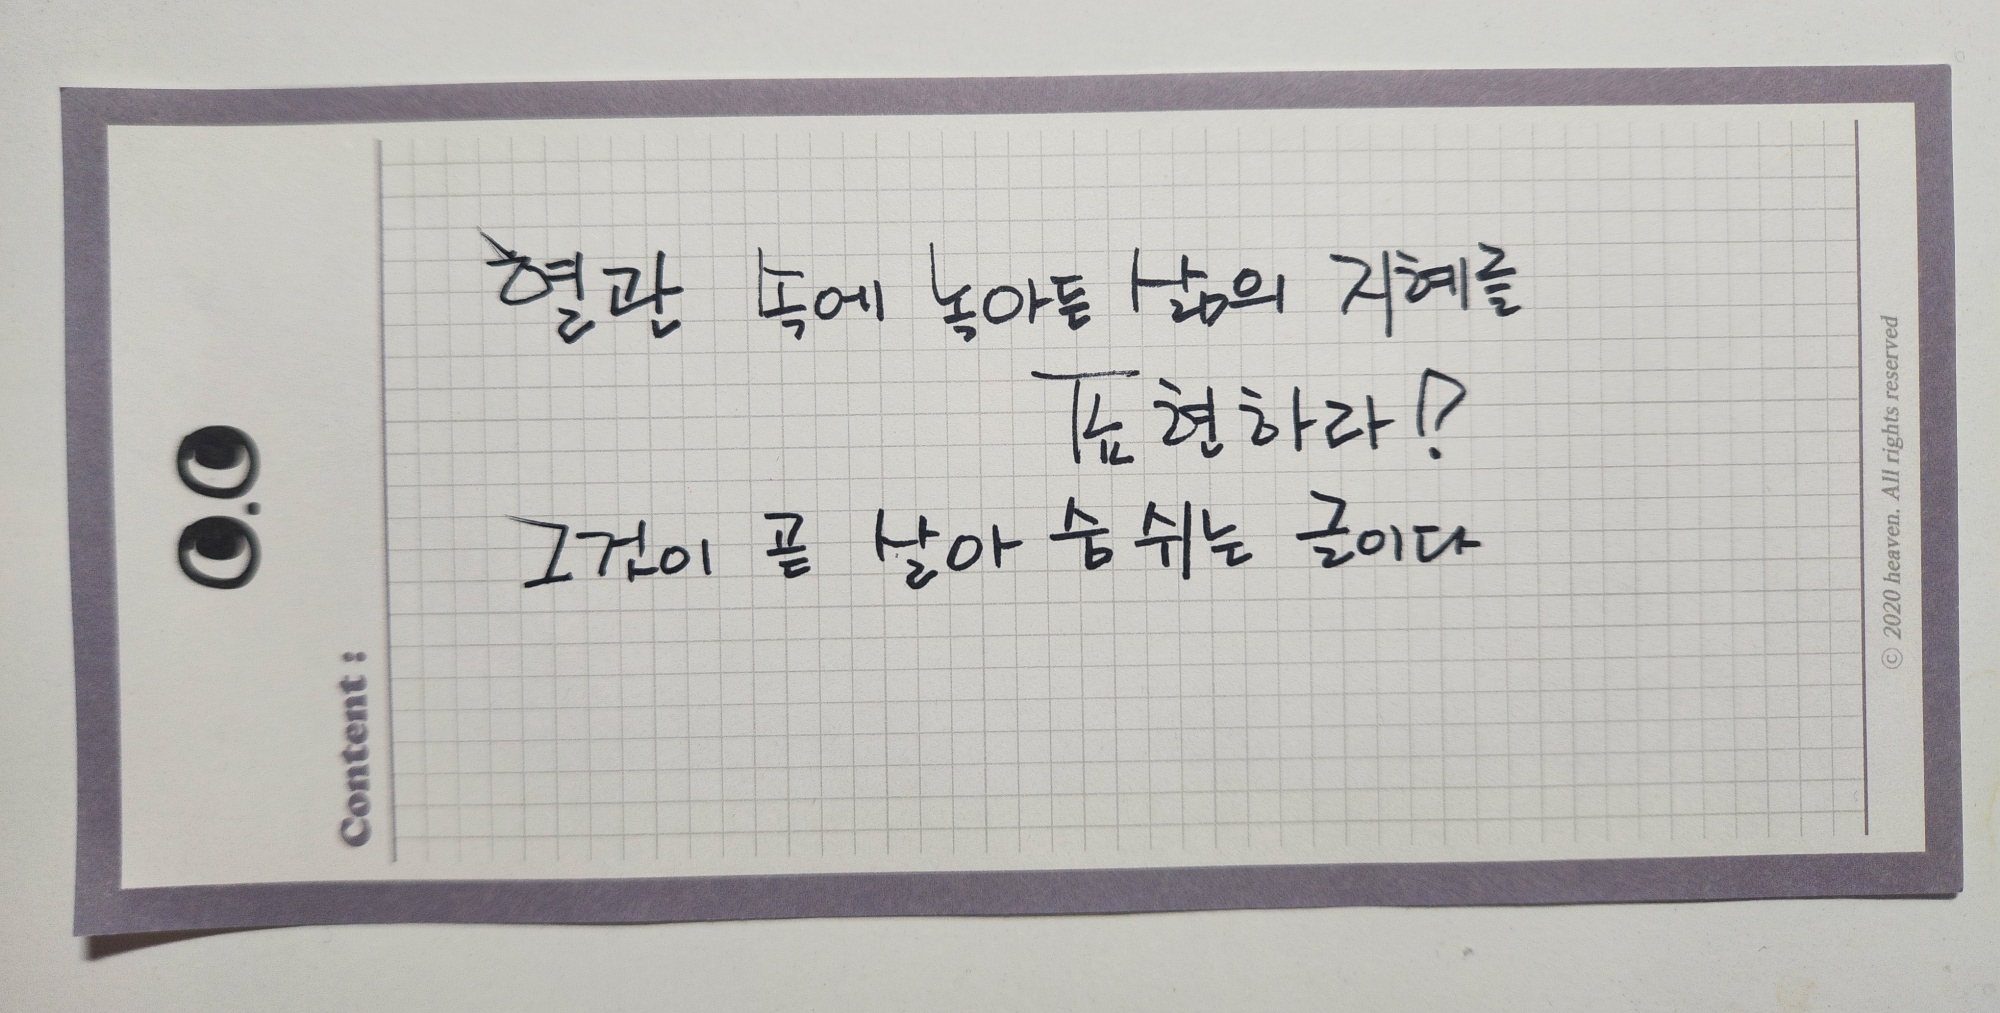 Content :
혈관 속에 녹아든 삶의 지혜를
표현하라!?
그것이 곧 살아 숨 쉬는 글이다
© 2020 heaven. All rights reserved